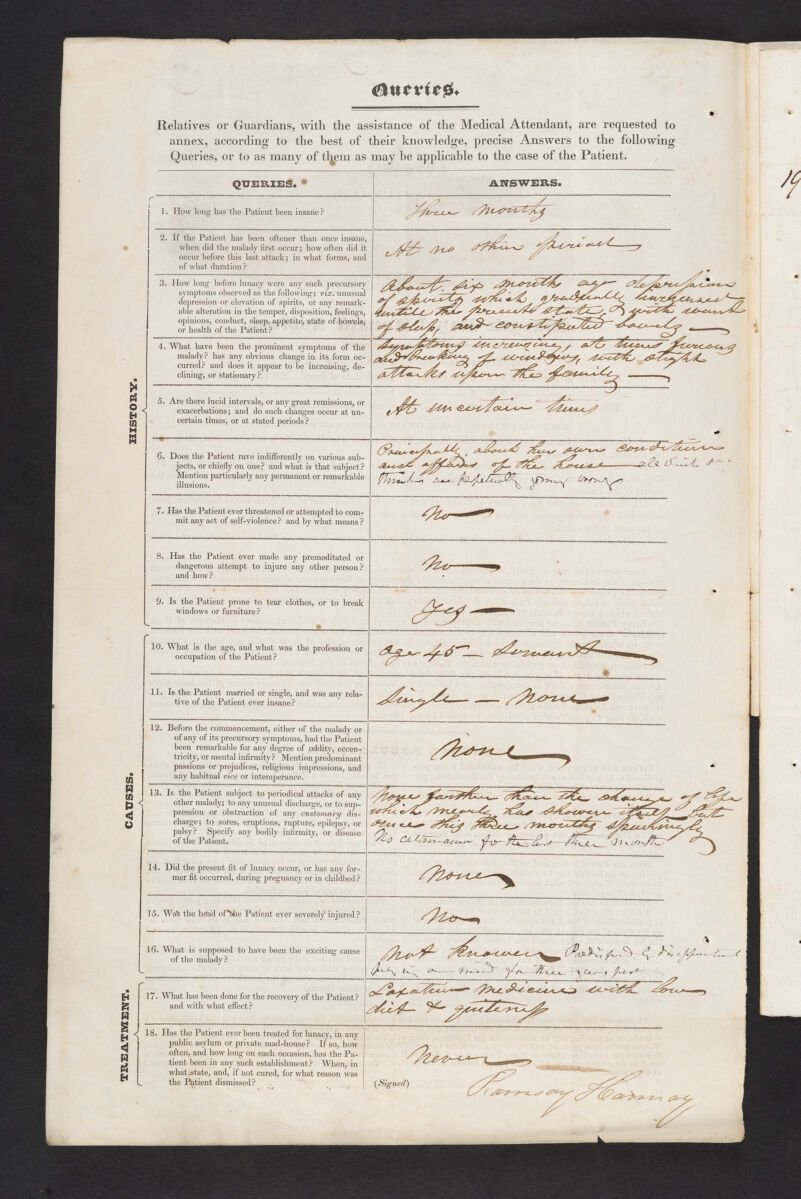 Queries.
Relatives or Guardians, with the assistance of the Medical Attendant, are requested to
annex, according to the best of their knowledge, precise Answers to the following
Queries, or to as many of them as may be applicable to the case of the Patient.
QUERIES.
ANSWERS.
HISTORY.
1. How long has the Patient been insane?
Three Months
2. If the Patient has been oftener than once insane,
when did the malady first occur; how often did it
occur before this last attack; in what forms, and
of what duration?
At no other period
3. How long before lunacy were any such precursory
symptoms observed as the following; viz. unusual
depression or elevation of spirits, or any remark-
able alteration in the temper, disposition, feelings,
opinions, conduct, sleep, appetite, state of bowels,
or health of the Patient?
About six months ago depression
of spirits which gradually increased
untill the present state, with want
of sleep, and constipated bowels
4. What have been the prominent symptoms of the
malady? has any obvious change in its form oc-
curred? and does it appear to be increasing, de-
clining, or stationary?
Symptoms increasing, at times furious
and breaking of windows, with slight
attacks upon the family
5. Are there lucid intervals, or any great remissions, or
exacerbations; and do such changes occur at un-
certain times, or at stated periods?
At uncertain times
6. Does the Patient rave indifferently on various sub-
jects, or chiefly on one? and what is that subject?
Mention particularly any permanent or remarkable
illusions.
Principally about her own condition
and affairs of the house all which she
thinks are perpetually going wrong
7. Has the Patient ever threatened or attempted to com-
mit any act of self-violence? and by what means?
No
8. Has the Patient ever made any premeditated or
dangerous attempt to injure any other person?
and how?
No
9. Is the Patient prone to tear clothes, or to break
windows or furniture?
Yes
CAUSES.
10. What is the age, and what was the profession or
occupation of the Patient?
age 45 – Servant
11. Is the Patient married or single, and was any rela-
tive of the Patient ever insane?
Single – None
12. Before the commencement, either of the malady or
of any of its precursory symptoms, had the Patient
been remarkable for any degree of oddity, eccen-
tricity, or mental infirmity? Mention predominant
passions or prejudices, religious impressions, and
any habitual vice or intemperance.
None
13. Is the Patient subject to periodical attacks of any
other malady; to any unusual discharge, or to sup-
pression or obstruction of any customary dis-
charge; to sores, eruptions, rupture, epilepsy, or
palsy? Specify any bodily infirmity, or disease
of the Patient.
None farther than the change of life
which has shown itself but
since this three months sparingly
No catamenia for the last three months
14. Did the present fit of lunacy occur, or has any for-
mer fit occurred, during pregnancy or in childbed?
None
15. Was the head of the Patient ever severely injured?
No
16. What is supposed to have been the exciting cause
of the malady?
Not known Predisposed by disappointment
in mind for three years past
TREATMENT.
17. What has been done for the recovery of the Patient?
and with what effect?
Laxative medicine with low
diet & quietness
18. Has the Patient ever been treated for lunacy, in any
public asylum or private mad-house? If so, how
often, and how long on each occasion, has the Pa-
tient been in any such establishment? When, in
what state, and, if not cured, for what reason was
the Patient dismissed?
Never
(Signed)
Ramsay
19